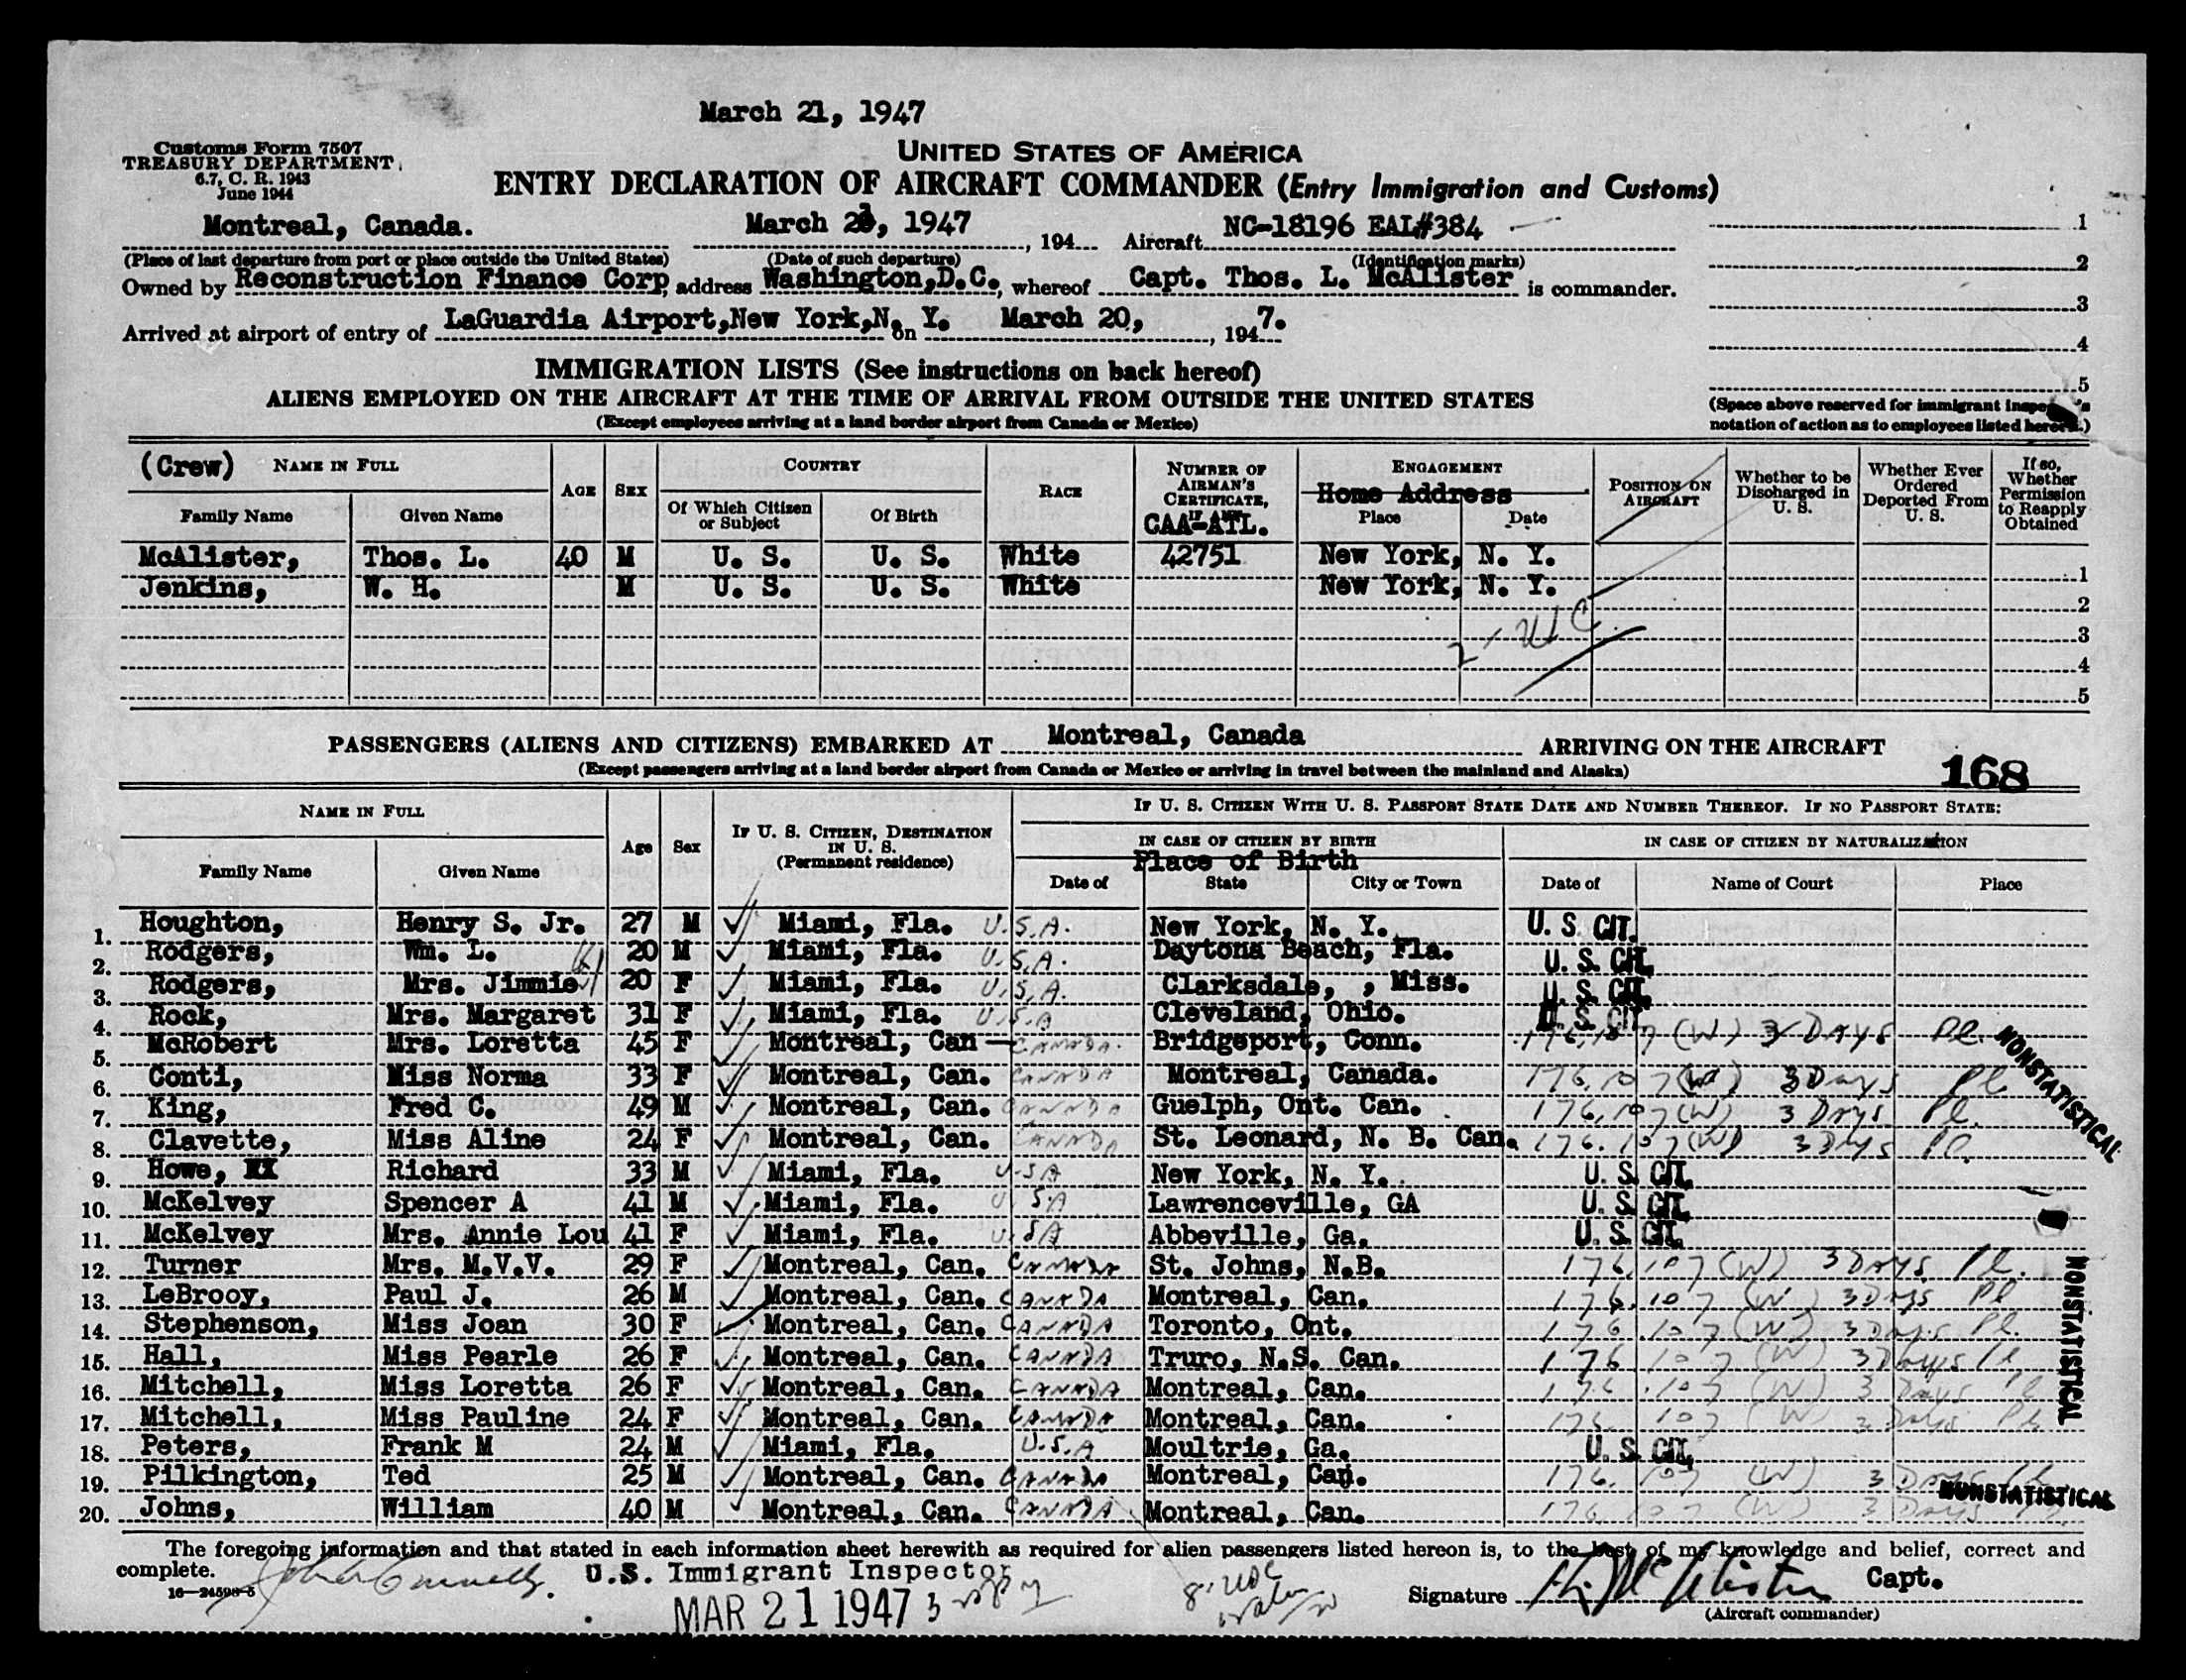 March 21, 1947
Customs Form 7507
TREASURY DEPARTMENT
6.7, C. R. 1943
June 1944
UNITED STATES OF AMERICA
ENTRY DECLARATION OF AIRCRAFT COMMANDER (Entry Immigration and Customs)
Montreal, Canada. March 21, 1947, 194 Aircraft NC-18196 EAL#384 1
(Place of last departure from port or place outside the United States) (Date of such departure) (Identification marks) 2
Owned by Reconstruction Finance Corp address Washington,D.C., whereof Capt. Thos. L. McAlister is commander.
3
Arrived at airport of entry of LaGuardia Airport,New York,N. Y. on March 20, , 1947.
4
IMMIGRATION LISTS (See instructions on back hereof)
5
ALIENS EMPLOYED ON THE AIRCRAFT AT THE TIME OF ARRIVAL FROM OUTSIDE THE UNITED STATES
(Except employees arriving at a land border airport from Canada or Mexico)
(Space above reserved for immigrant inspector's
notation of action as to employees listed hereon.)
(Crew) NAME IN FULL AGE SEX COUNTRY RACE NUMBER OF AIRMAN'S CERTIFICATE, IF ANY CAA-ATL. ENGAGEMENT Home Address POSITION ON AIRCRAFT Whether to be Discharged in U. S. Whether Ever Ordered Deported From U. S. If so, Whether Permission to Reapply Obtained
Family Name Given Name Of Which Citizen or Subject Of Birth Place Date
McAlister, Thos. L. 40 M U. S. U. S. White 42751 New York, N. Y. 1
Jenkins, W. H. M U. S. U. S. White New York, N. Y. 2
2 - USC 3
4
5
PASSENGERS (ALIENS AND CITIZENS) EMBARKED AT Montreal, Canada ARRIVING ON THE AIRCRAFT
(Except passengers arriving at a land border airport from Canada or Mexico or arriving in travel between the mainland and Alaska)
168
NAME IN FULL Age Sex IF U. S. CITIZEN, DESTINATION IN U. S. (Permanent residence) IF U. S. CITIZEN WITH U. S. PASSPORT STATE DATE AND NUMBER THEREOF. IF NO PASSPORT STATE:
IN CASE OF CITIZEN BY BIRTH IN CASE OF CITIZEN BY NATURALIZATION
Place of Birth
Family Name Given Name Date of State City or Town Date of Name of Court Place
1. Houghton, Henry S. Jr. 27 M Miami, Fla. U.S.A. New York, N. Y. U. S. CIT.
2. Rodgers, Wm. L. 20 M Miami, Fla. U.S.A. Daytona Beach, Fla. U. S. CIT.
3. Rodgers, Mrs. Jimmie 20 F Miami, Fla. U.S.A. Clarksdale, , Miss. U. S. CIT.
4. Rock, Mrs. Margaret 31 F Miami, Fla. U.S.A Cleveland, Ohio. U. S. CIT.
5. McRobert Mrs. Loretta 45 F Montreal, Can CANADA. Bridgeport, Conn. 176.107 (W) 3 DAYS Pl. NONSTATISTICAL
6. Conti, Miss Norma 33 F Montreal, Can. CANADA Montreal, Canada. 176.107 (W) 3 Days Pl
7. King, Fred C. 49 M Montreal, Can. CANADA Guelph, Ont. Can. 176.107 (W) 3 Days Pl.
8. Clavette, Miss Aline 24 F Montreal, Can. CANADA St. Leonard, N. B. Can. 176.107 (W) 3 Days Pl.
9. Howe, XX Richard 33 M Miami, Fla. U.S.A New York, N. Y. U. S. CIT.
10. McKelvey Spencer A 41 M Miami, Fla. U.S.A Lawrenceville, GA U. S. CIT.
11. McKelvey Mrs. Annie Lou 41 F Miami, Fla. U.S.A Abbeville, Ga. U. S. CIT.
12. Turner Mrs. M.V.V. 29 F Montreal, Can. CANADA St. Johns, N.B. 176.107 (W) 3 Days Pl. NONSTATISTICAL
13. LeBrooy, Paul J. 26 M Montreal, Can. CANADA Montreal, Can. 176.107 (W) 3 Days Pl
14. Stephenson, Miss Joan 30 F Montreal, Can. CANADA Toronto, Ont. 176.107 (W) 3 Days Pl.
15. Hall, Miss Pearle 26 F Montreal, Can. CANADA Truro, N.S. Can. 176.107 (W) 3 Days Pl
16. Mitchell, Miss Loretta 26 F Montreal, Can. CANADA Montreal, Can. 176.107 (W) 3 Days Pl
17. Mitchell, Miss Pauline 24 F Montreal, Can. CANADA Montreal, Can. 176.107 (W) 3 Days Pl
18. Peters, Frank M 24 M Miami, Fla. U.S.A Moultrie, Ga. U. S. CIT.
19. Pilkington, Ted 25 M Montreal, Can. CANADA Montreal, Can. 176.107 (W) 3 Days Pl
NONSTATISTICAL
20. Johns, William 40 M Montreal, Can. CANADA Montreal, Can. 176.107 (W) 3 Days
The foregoing information and that stated in each information sheet herewith as required for alien passengers listed hereon is, to the best of my knowledge and belief, correct and
complete. U.S. Immigrant Inspector
16—24598-5
MAR 21 1947
8 USC
Signature McAlister Capt.
(Aircraft commander)